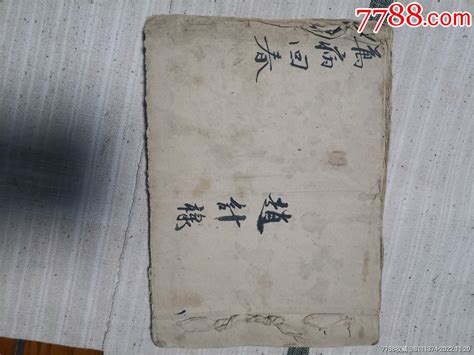 7788.com
萬病回春
趙
7788收藏@S111374 2022.11.20